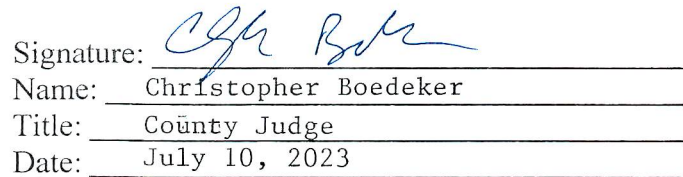 Signature:
Name: Christopher Boedeker
Title: County Judge
Date: July 10, 2023